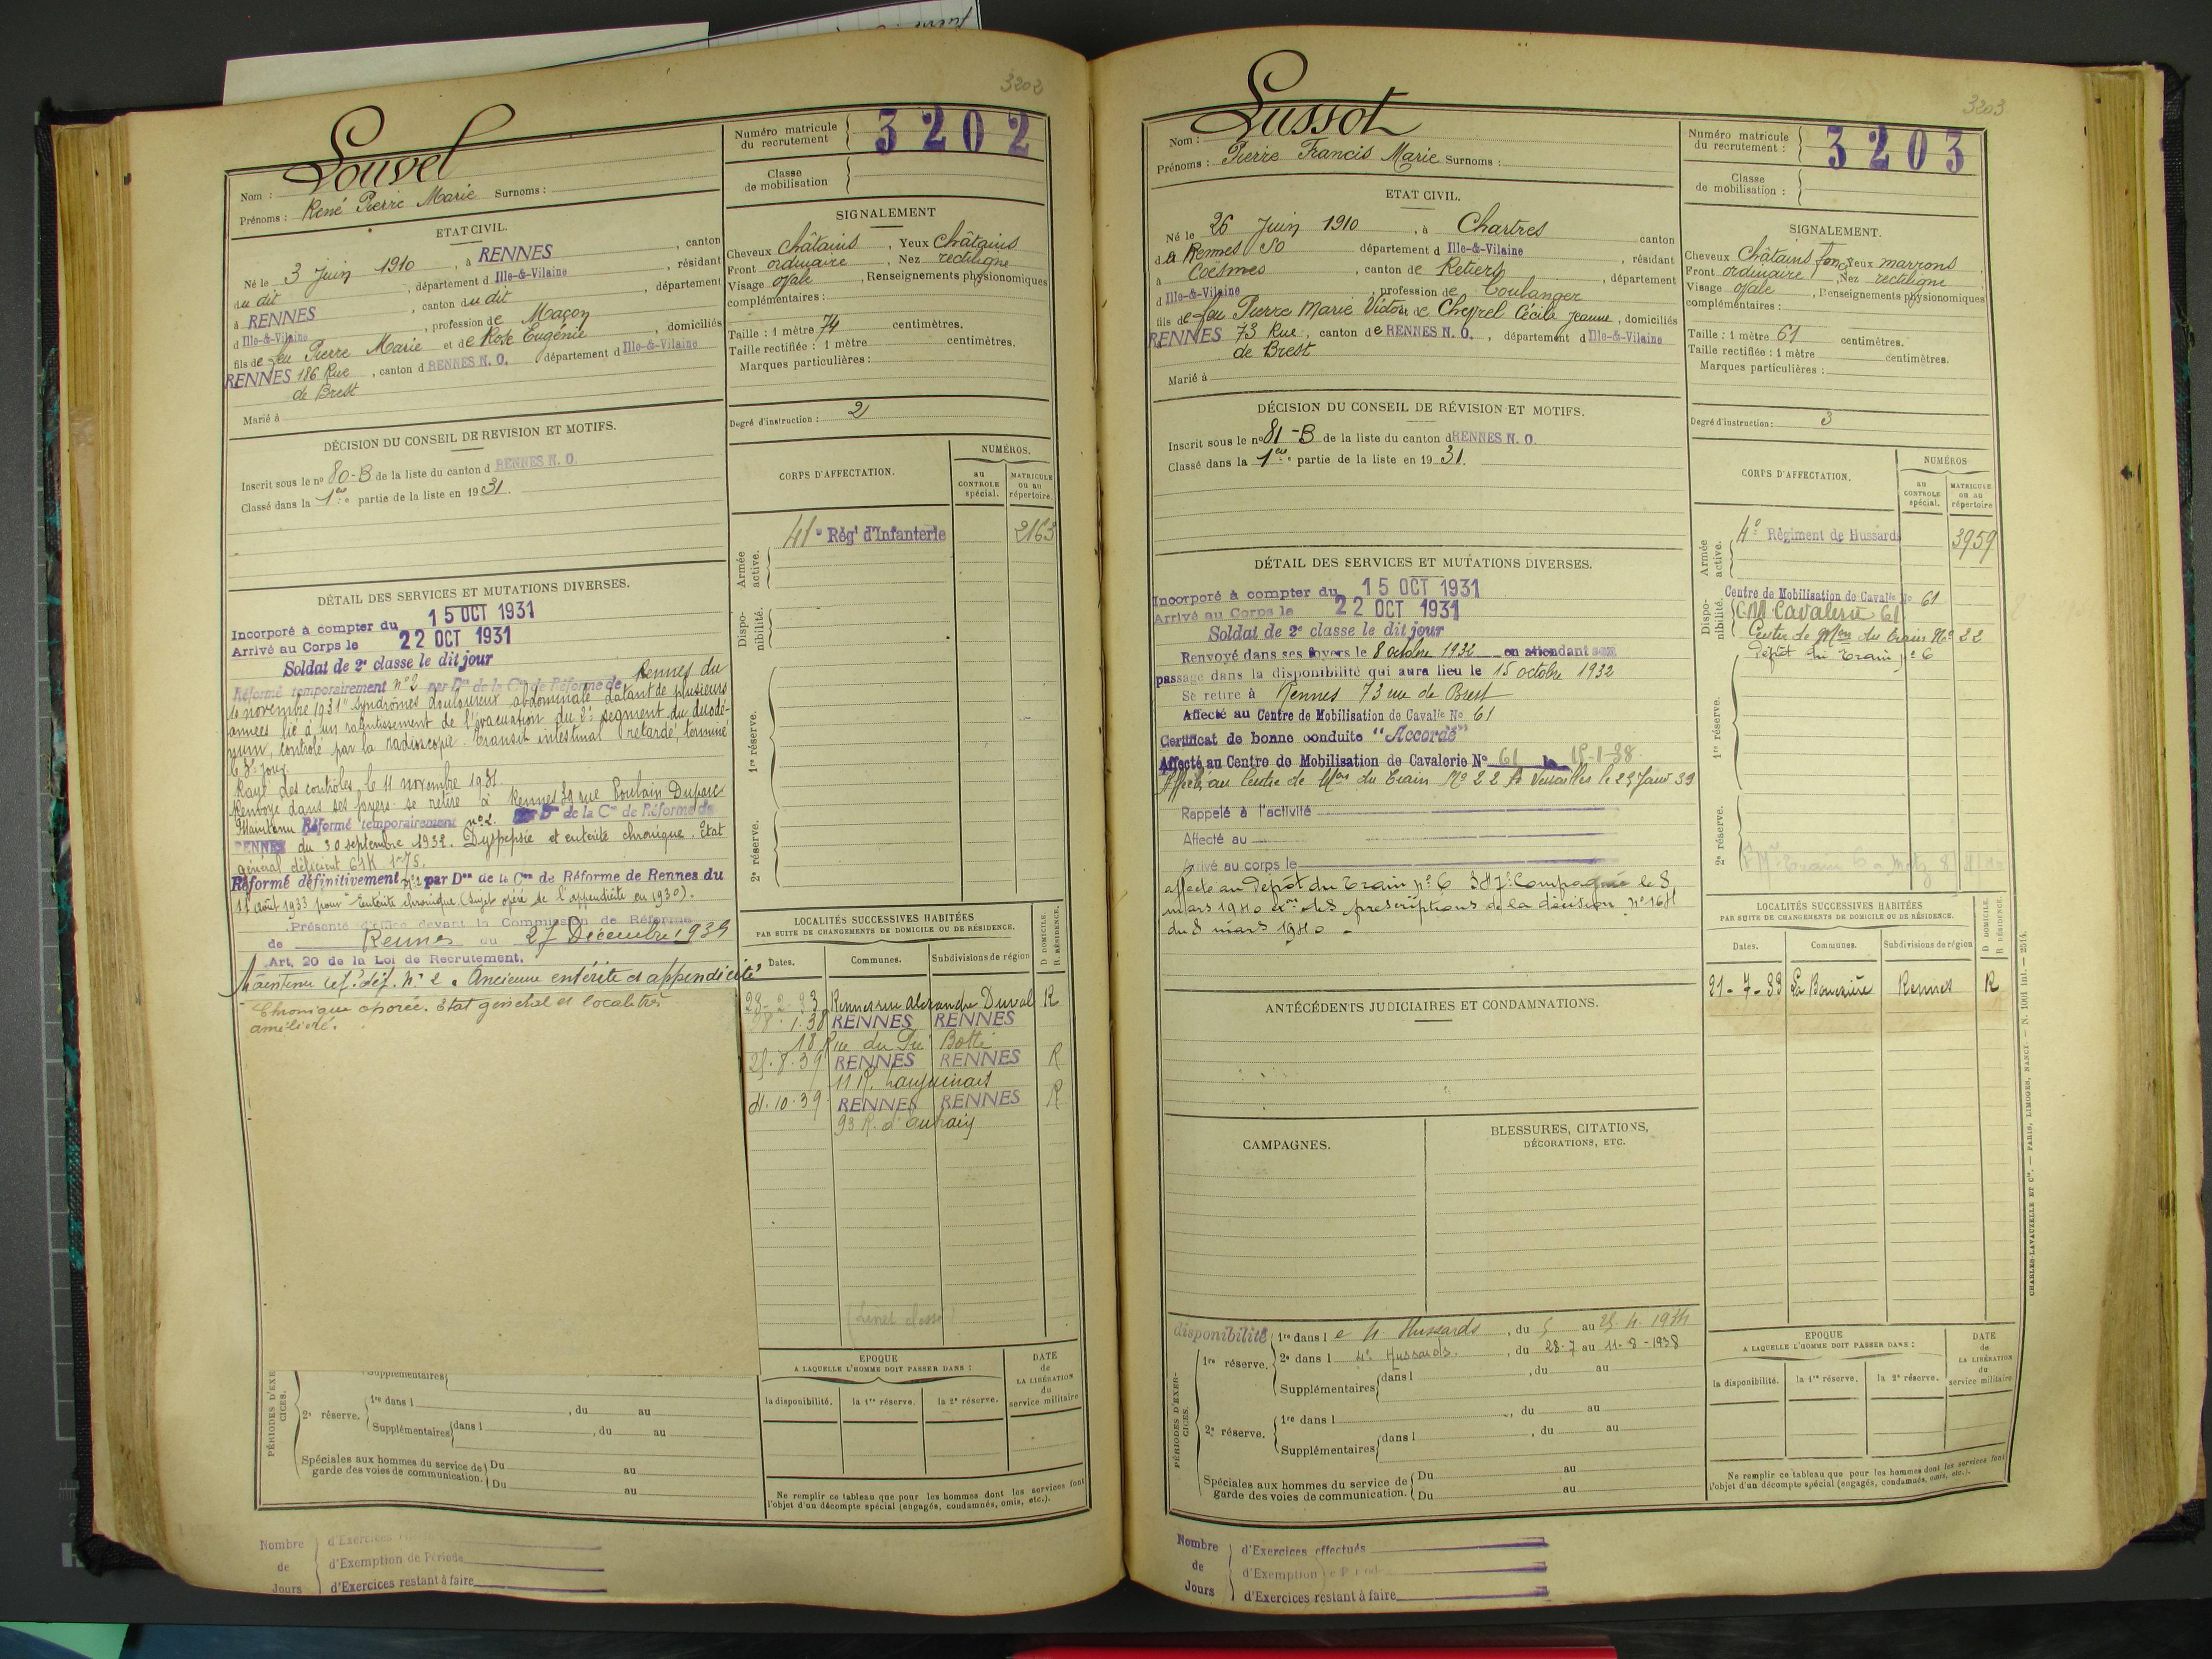 3202
Louvel
Nom :
Prénoms : René Pierre Marie Surnoms :
Numéro matricule du recrutement 3202
Classe de mobilisation
ETAT CIVIL.
Né le 3 Juin 1910, à RENNES, canton
du dit, département d Ille-&-Vilaine, résidant
à RENNES, canton du dit, département
d Ille-&-Vilaine, profession de Maçon
fils de feu Pierre Marie et de Rose Eugénie, domiciliés
RENNES 186 Rue, canton d RENNES N. O. département d Ille-&-Vilaine
de Brest
Marié à
SIGNALEMENT
Cheveux châtains, Yeux châtains
Front ordinaire, Nez rectiligne
Visage ovale, Renseignements physionomiques
complémentaires :
Taille : 1 mètre 74 centimètres.
Taille rectifiée : 1 mètre centimètres.
Marques particulières :
Degré d'instruction : 2
DÉCISION DU CONSEIL DE REVISION ET MOTIFS.
Inscrit sous le n° 80-B de la liste du canton d RENNES N. O.
Classé dans la 1ère partie de la liste en 1931.
CORPS D'AFFECTATION.
NUMÉROS.
au CONTROLE spécial.
MATRICULE ou au répertoire.
Armée active.
41e Régt d'Infanterie 2163
Disponibilité.
1re réserve.
2e réserve.
DÉTAIL DES SERVICES ET MUTATIONS DIVERSES.
Incorporé à compter du 15 OCT 1931
Arrivé au Corps le 22 OCT 1931
Soldat de 2e classe le dit jour
Réformé temporairement n°2 par Don de la Con de Réforme de Rennes du
novembre 1931 "Syndromes douloureux abdominale datant de plusieurs
années lié à un ralentissement de l'évacuation du 2e segment du duodé-
num, contrôlé par la radioscopie. Transit intestinal retardé, terminé
le 3e jour
Rayé des contrôles le 11 novembre 1931
Renvoyé dans ses foyers se retire à Rennes 39 rue Poulain Duparc
Maintenu Réformé temporairement n°2. par Don de la Con de Réforme de
RENNES du 30 septembre 1932. Dyspepsie et entérite chronique. Etat
général déficient 61K 1m75.
Réformé définitivement n°2 par Don de la Con de Réforme de Rennes du
11 août 1933 pour "Entérite chronique (sujet opéré de l'appendicite en 1930).
Présenté d'office devant la Commission de Réforme
de Rennes du 27 Décembre 1939
Art. 20 de la Loi de Recrutement.
Maintenu réf. déf. N° 2. Ancienne entérite et appendicite
Chronique opérée. Etat général et localité
amélioré.
LOCALITÉS SUCCESSIVES HABITÉES
PAR SUITE DE CHANGEMENTS DE DOMICILE OU DE RÉSIDENCE.
D DOMICILE. R RÉSIDENCE.
Dates. Communes. Subdivisions de région
28-2-33 Rennes rue Alexandre Duval R
1.38 RENNES RENNES
18 Rue du Pré Botté
25.8.39 RENNES RENNES R
11 R. Lanjuinais
4.10.39 RENNES RENNES R
93 R. d'Antrain
PÉRIODES D'EXERCICES.
Supplémentaires
2e réserve. 1re dans l, du au
Supplémentaires dans l, du au
Spéciales aux hommes du service de garde des voies de communication. Du au
Du au
EPOQUE
A LAQUELLE L'HOMME DOIT PASSER DANS :
la disponibilité. la 1re réserve. la 2e réserve.
DATE de LA LIBÉRATION du service militaire
Ne remplir ce tableau que pour les hommes dont les services font
l'objet d'un décompte spécial (engagés, condamnés, omis, etc.).
Nombre de Jours
d'Exercices
d'Exemption de Période
d'Exercices restant à faire
3203
Lussot
Nom :
Prénoms : Pierre Francis Marie Surnoms :
Numéro matricule du recrutement : 3203
Classe de mobilisation :
ETAT CIVIL.
Né le 26 Juin 1910, à Chartres canton
de Rennes SO département d Ille-&-Vilaine, résidant
à Coësmes, canton de Retiers, département
d Ille-&-Vilaine, profession de boulanger
fils de feu Pierre Marie Victor de Cheyrel Cécile Jeanne, domiciliés
RENNES 73 Rue, canton de RENNES N. O., département d Ille-&-Vilaine
de Brest
Marié à
SIGNALEMENT.
Cheveux Châtains fonc Yeux marrons
Front ordinaire, Nez rectiligne
Visage ovale, Renseignements physionomiques
complémentaires :
Taille : 1 mètre 61 centimètres.
Taille rectifiée : 1 mètre centimètres.
Marques particulières :
Degré d'instruction : 3
DÉCISION DU CONSEIL DE RÉVISION ET MOTIFS.
Inscrit sous le n° 81-B de la liste du canton d RENNES N. O.
Classé dans la 1ère partie de la liste en 1931.
CORPS D'AFFECTATION.
NUMÉROS
au CONTROLE spécial.
MATRICULE ou au répertoire
Armée active.
4e Régiment de Hussards 3959
Disponibilité.
Centre de Mobilisation de Cavalie No 61
CM Cavalerie 61
Centre de Mon du Train No 22
Dépôt du Train n° 6
1re réserve.
2e réserve.
DÉTAIL DES SERVICES ET MUTATIONS DIVERSES.
Incorporé à compter du 15 OCT 1931
Arrivé au Corps le 22 OCT 1931
Soldat de 2e classe le dit jour
Renvoyé dans ses foyers le 8 octobre 1932 en attendant son
passage dans la disponibilité qui aura lieu le 15 octobre 1932
Se retire à Rennes 73 rue de Brest
Affecté au Centre de Mobilisation de Cavalie No 61
Certificat de bonne conduite "Accordé"
Affecté au Centre de Mobilisation de Cavalerie No 61 le 15-1-38
Affecté au Centre de Mon du Train No 22 à Versailles le 23 Janv 39
Rappelé à l'activité
Affecté au
Arrivé au corps le
affecté au Dépôt du Train n° 6 347e Compagnie le 8
mars 1940 exon des prescriptions de la décision n° 164
du 8 mars 1940 -
LOCALITÉS SUCCESSIVES HABITÉES
PAR SUITE DE CHANGEMENTS DE DOMICILE OU DE RÉSIDENCE.
D DOMICILE. R RÉSIDENCE.
Dates. Communes. Subdivisions de région
21-7-33 La Bouexière Rennes R
ANTÉCÉDENTS JUDICIAIRES ET CONDAMNATIONS.
CAMPAGNES.
BLESSURES, CITATIONS,
DÉCORATIONS, ETC.
PÉRIODES D'EXERCICES.
disponibilité 1re dans l e 4. Hussards, du 5 au 25.4.1934
1re réserve. 2e dans l 4e Hussards., du 28-7 au 11-8-1938
Supplémentaires dans l, du au
2e réserve. 1re dans l, du au
Supplémentaires dans l, du au
Spéciales aux hommes du service de garde des voies de communication. Du au
Du au
EPOQUE
A LAQUELLE L'HOMME DOIT PASSER DANS :
la disponibilité. la 1re réserve. la 2e réserve.
DATE de LA LIBÉRATION du service militaire
Ne remplir ce tableau que pour les hommes dont les services font
l'objet d'un décompte spécial (engagés, condamnés, omis, etc.).
Nombre de Jours
d'Exercices effectués
d'Exemption
d'Exercices restant à faire
CHARLES-LAVAUZELLE ET Cie. — PARIS, LIMOGES, NANCY. — N. 1001 Int. — 2514.